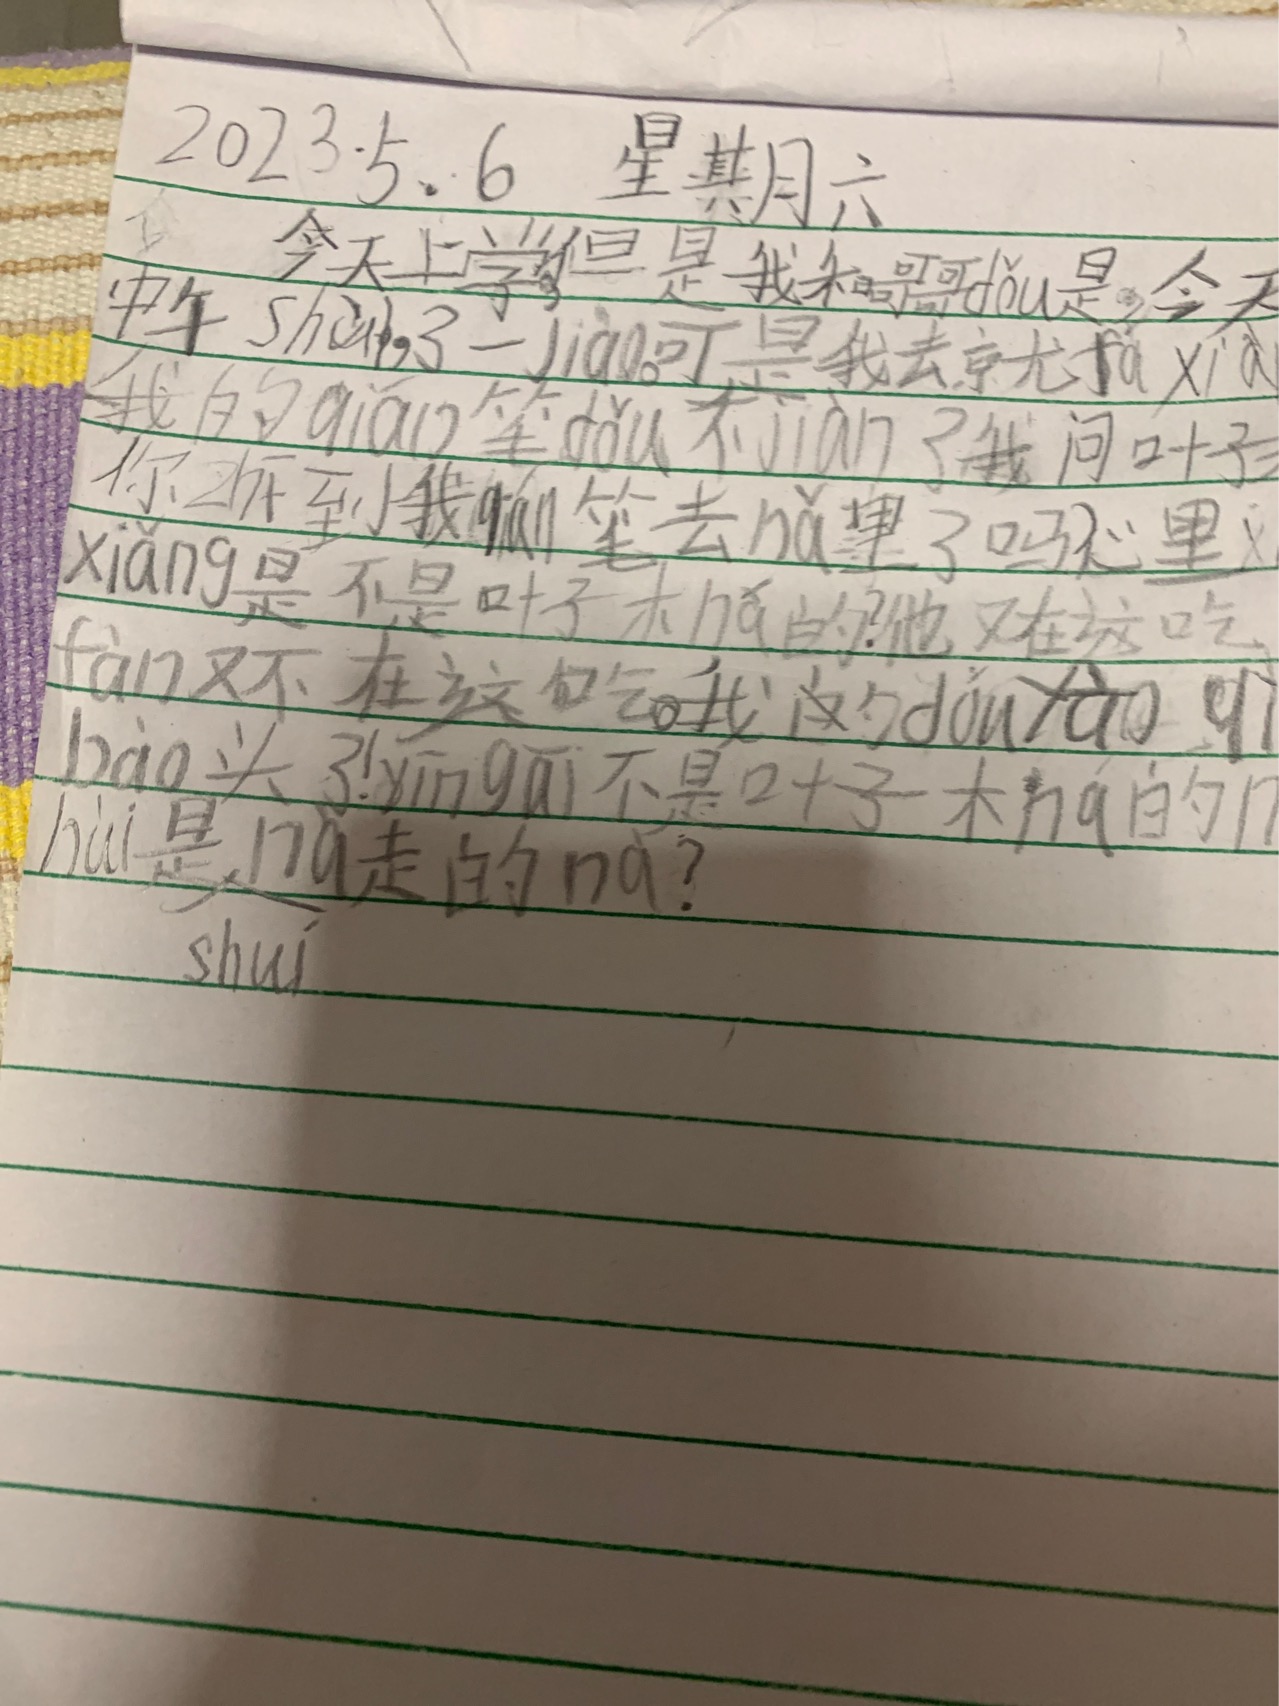 2023.5.6 星期月六
今天上学,但是我和哥哥dǒu是。今天
中午 shùi了一jiào。可是我去京尤fā xià
我的qiān笔dǒu不jiàn了我问叶子
你 到我qiān笔去nǎ里了吗心里
xiǎng是不是叶子木ná的?他又在这吃
fàn又不在这吃。我的dǒu
bào头了!yīng gāi不是叶子木ná的
hùi是 ná走的na?
shuí